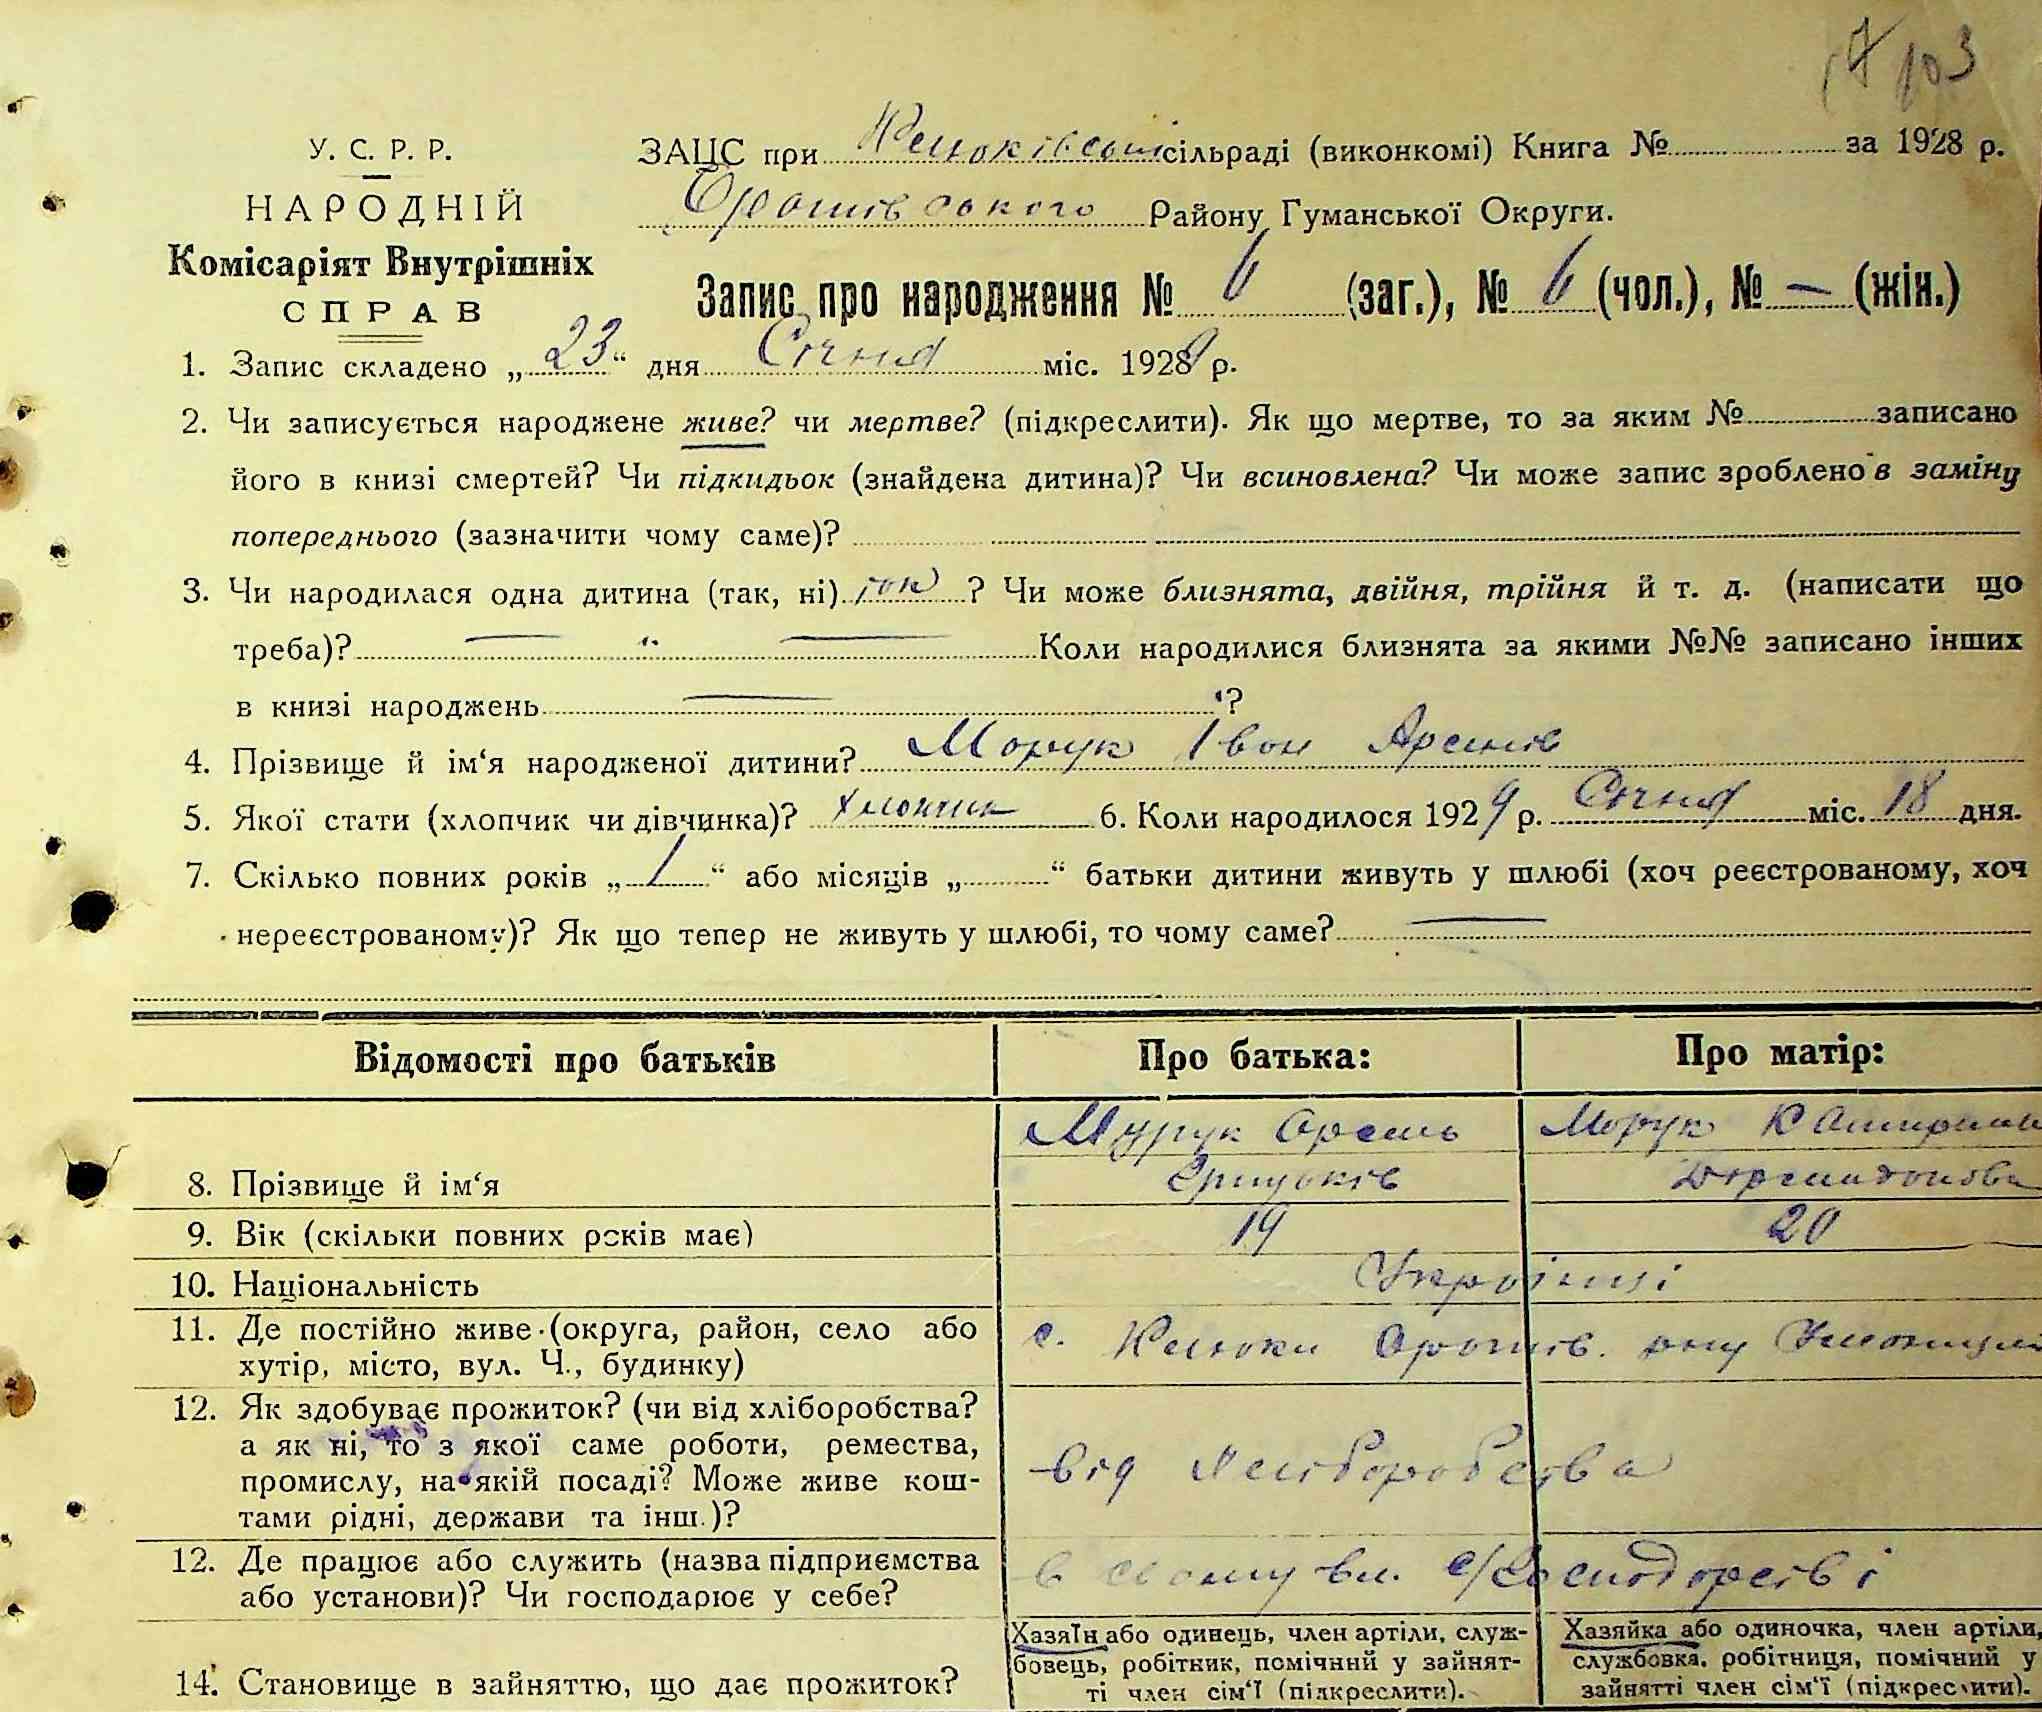 103
У. С. Р. Р.
НАРОДНІЙ
Комісаріят Внутрішніх
СПРАВ
ЗАЦС при Клюківські сільраді (виконкомі) Книга № за 1928 р.
Оратівського Району Гуманської Округи.
Запис про народження № 6 (заг.), № 6 (чол.), № — (жін.)
1. Запис складено „23“ дня Січня міс. 1929 р.
2. Чи записується народжене живе? чи мертве? (підкреслити). Як що мертве, то за яким № записано
його в книзі смертей? Чи підкидьок (знайдена дитина)? Чи всиновлена? Чи може запис зроблено в заміну
попереднього (зазначити чому саме)?
3. Чи народилася одна дитина (так, ні) так ? Чи може близнята, двійня, трійня й т. д. (написати що
треба)? — „ — Коли народилися близнята за якими №№ записано інших
в книзі народжень — ?
4. Прізвище й ім‘я народженої дитини? Морук Іван Арсенів
5. Якої стати (хлопчик чи дівчинка)? хлопчик 6. Коли народилося 1929 р. Січня міс. 18 дня.
7. Скілько повних років „1“ або місяців „ “ батьки дитини живуть у шлюбі (хоч реєстрованому, хоч
нереєстрованому)? Як що тепер не живуть у шлюбі, то чому саме? —
Відомості про батьків Про батька: Про матір:
Мурук Арсень Морук
8. Прізвище й ім‘я Грицьків
9. Вік (скільки повних років має) 19 20
10. Національність Українці
11. Де постійно живе (округа, район, село або
хутір, місто, вул. Ч., будинку) с. Клюки Оратів. р-ну Уманщ
12. Як здобуває прожиток? (чи від хліборобства?
а як ні, то з якої саме роботи, ремества,
промислу, на якій посаді? Може живе кош-
тами рідні, держави та інш.)? від хліборобства
12. Де працює або служить (назва підприємства
або установи)? Чи господарює у себе? в свому вл. с/господорстві
14. Становище в зайняттю, що дає прожиток?
Хазяїн або одинець, член артіли, служ-
бовець, робітник, помічний у зайнят-
ті член сім‘ї (підкреслити).
Хазяйка або одиночка, член артіли,
службовка, робітниця, помічний у
зайнятті член сім‘ї (підкреслити).